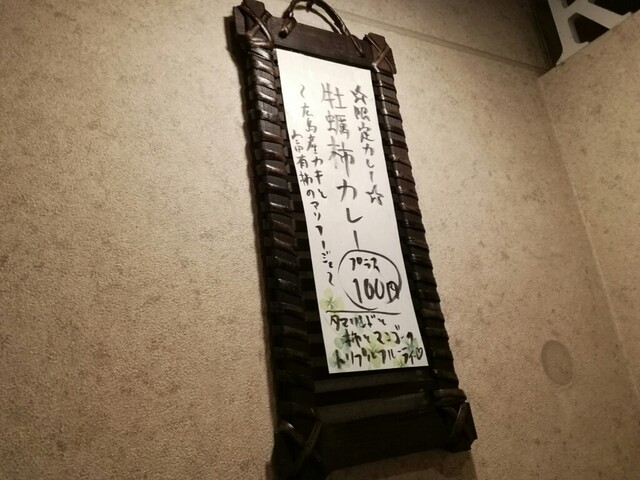 ☆限定カレー☆
牡蠣柿カレー
プラス
100円
〜広島産カキと
富有柿のマリアージュ〜
タマリンドと
柿とマンゴーの
トリプルフルーティ♡